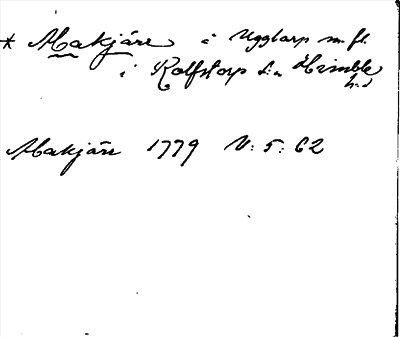 * Makjäre i Ugglarp m. fl.
i Rolfstorp s:n Himble
h:d
Makjärr 1779 V: 5: 62